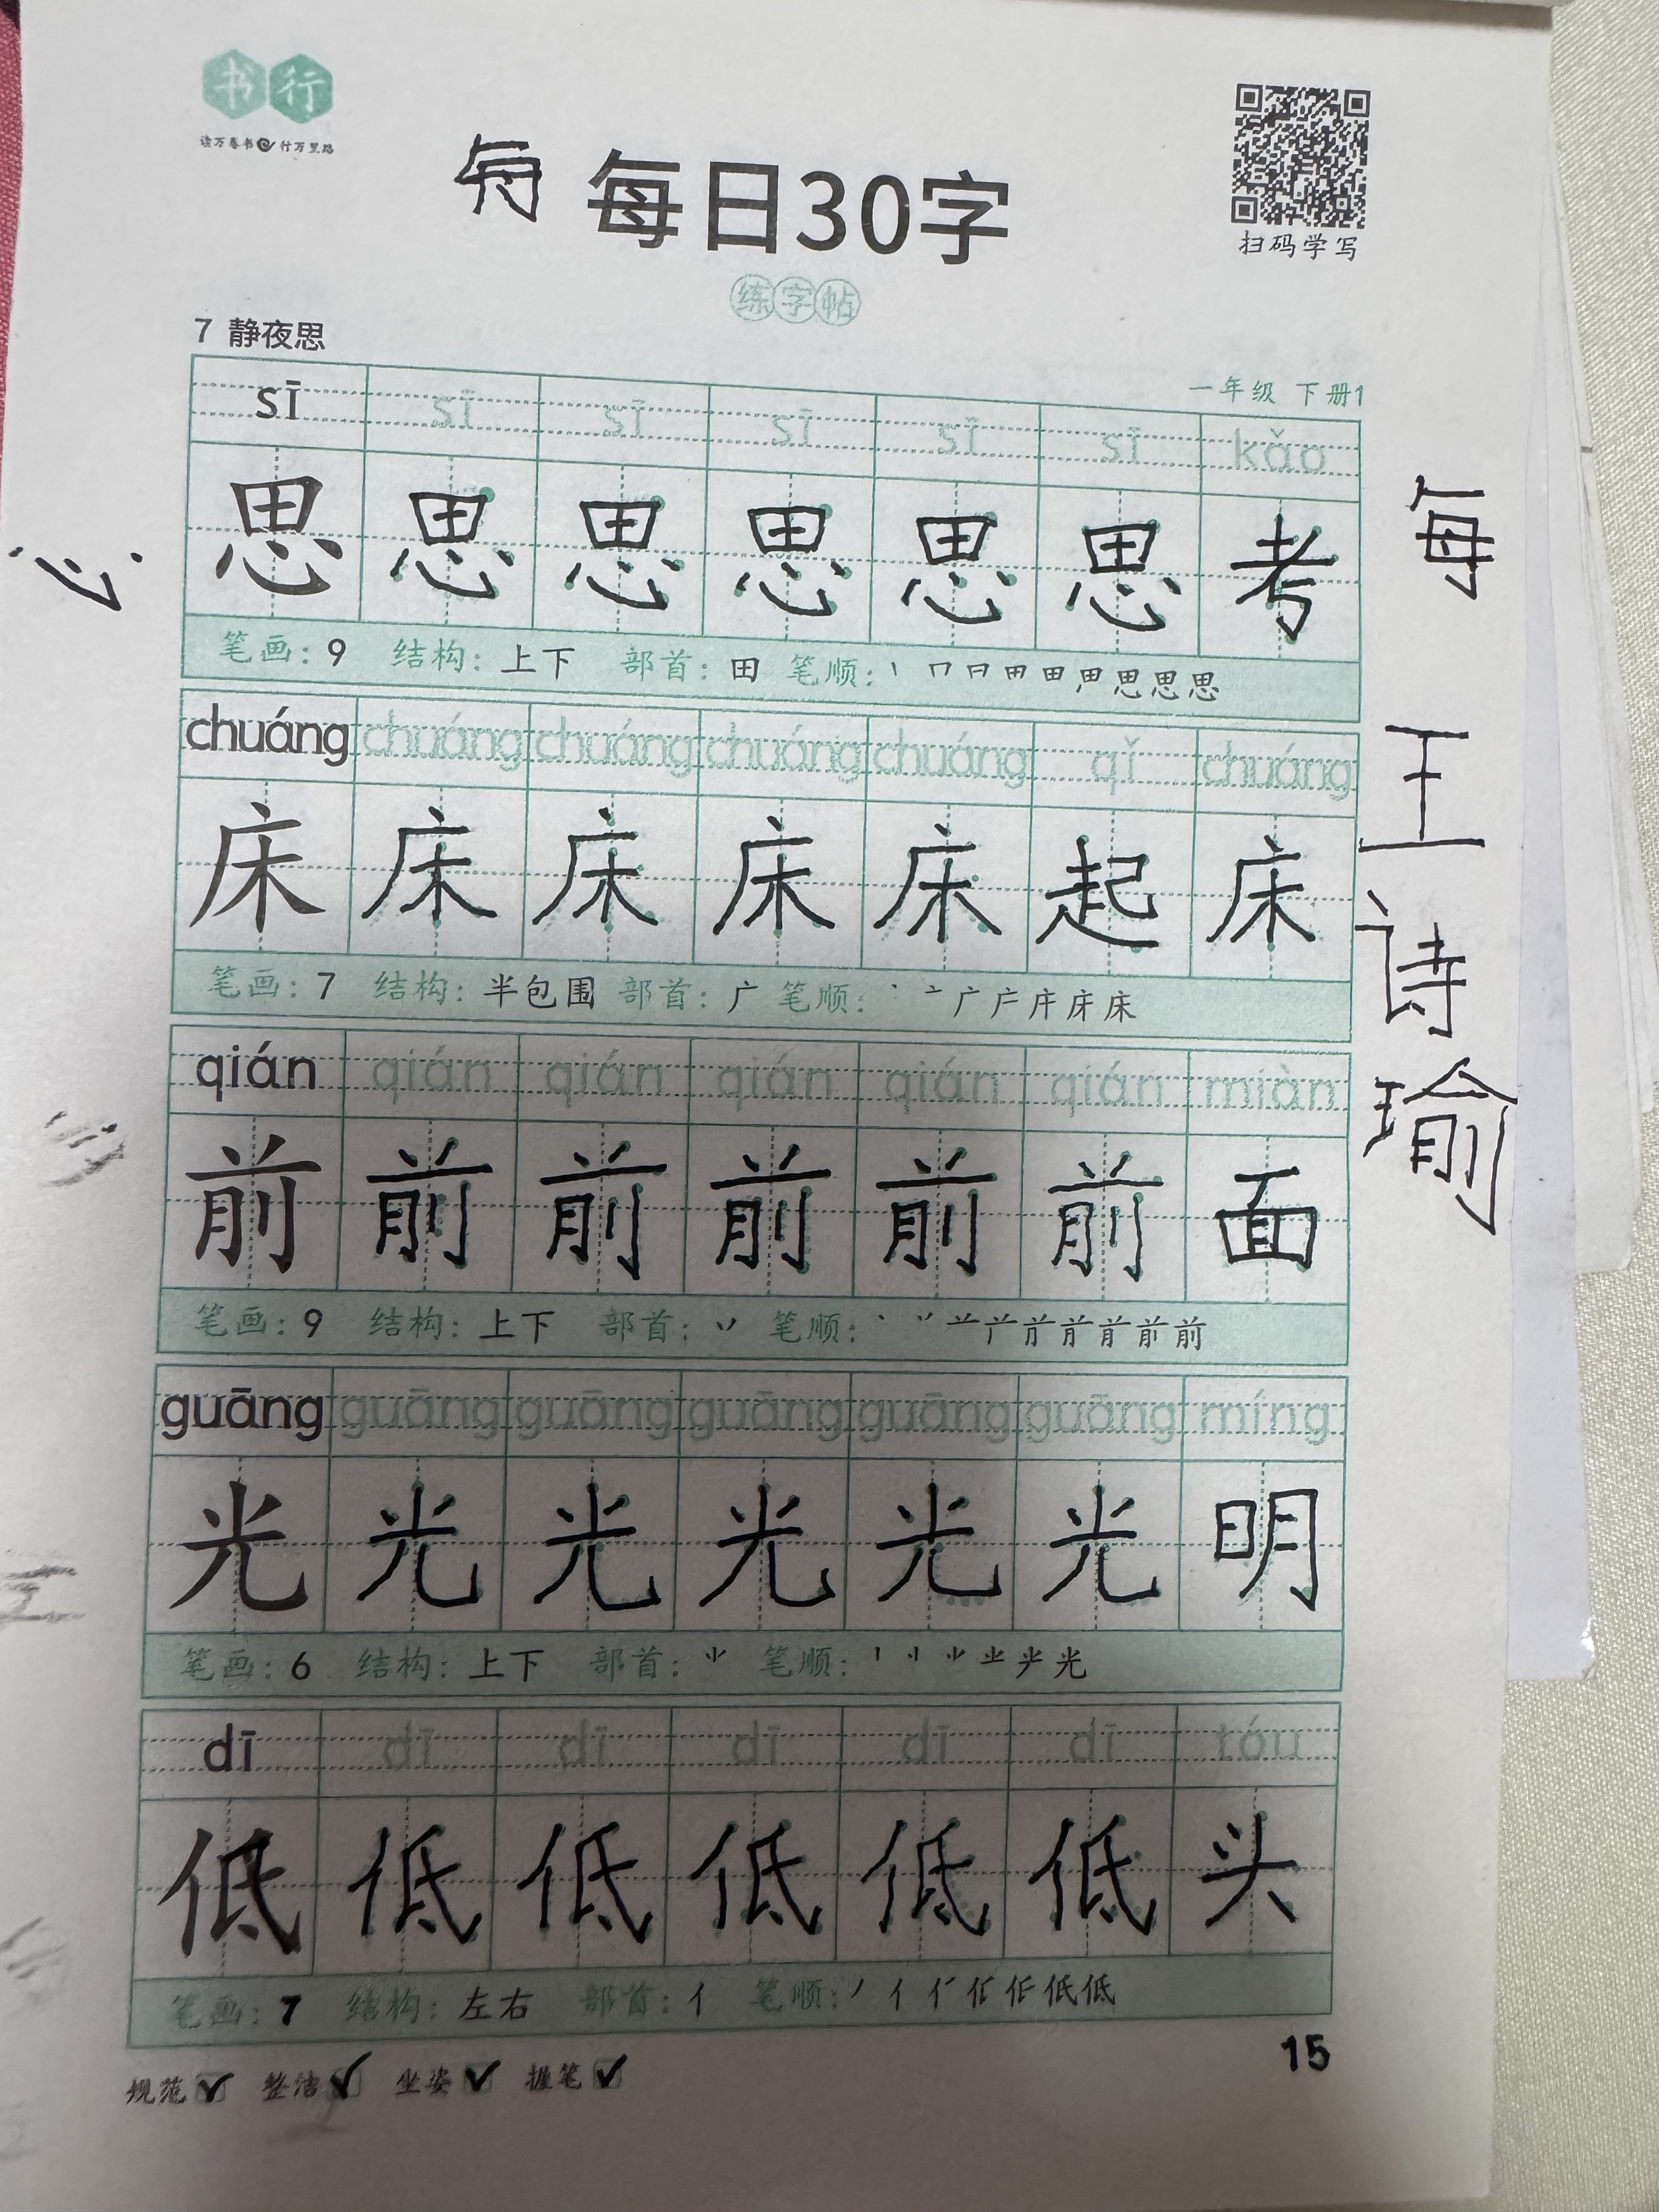 书行
读万卷书 行万里路
每
每日30字
练字帖
扫码学写
7 静夜思
一年级 下册1
sī sī sī sī sī sī kǎo
思 思 思 思 思 思 考
笔画：9 结构：上下 部首：田 笔顺：
心
每
chuáng chuáng chuáng chuáng chuáng qǐ chuáng
床 床 床 床 床 起 床
笔画：7 结构：半包围 部首：广 笔顺：
王诗瑜
qián qián qián qián qián qián miàn
前 前 前 前 前 前 面
笔画：9 结构：上下 部首：丷 笔顺：
guāng guāng guāng guāng guāng guāng míng
光 光 光 光 光 光 明
笔画：6 结构：上下 部首：⺌ 笔顺：
dī dī dī dī dī dī tóu
低 低 低 低 低 低 头
笔画：7 结构：左右 部首：亻 笔顺：
15
规范 整洁 坐姿 握笔